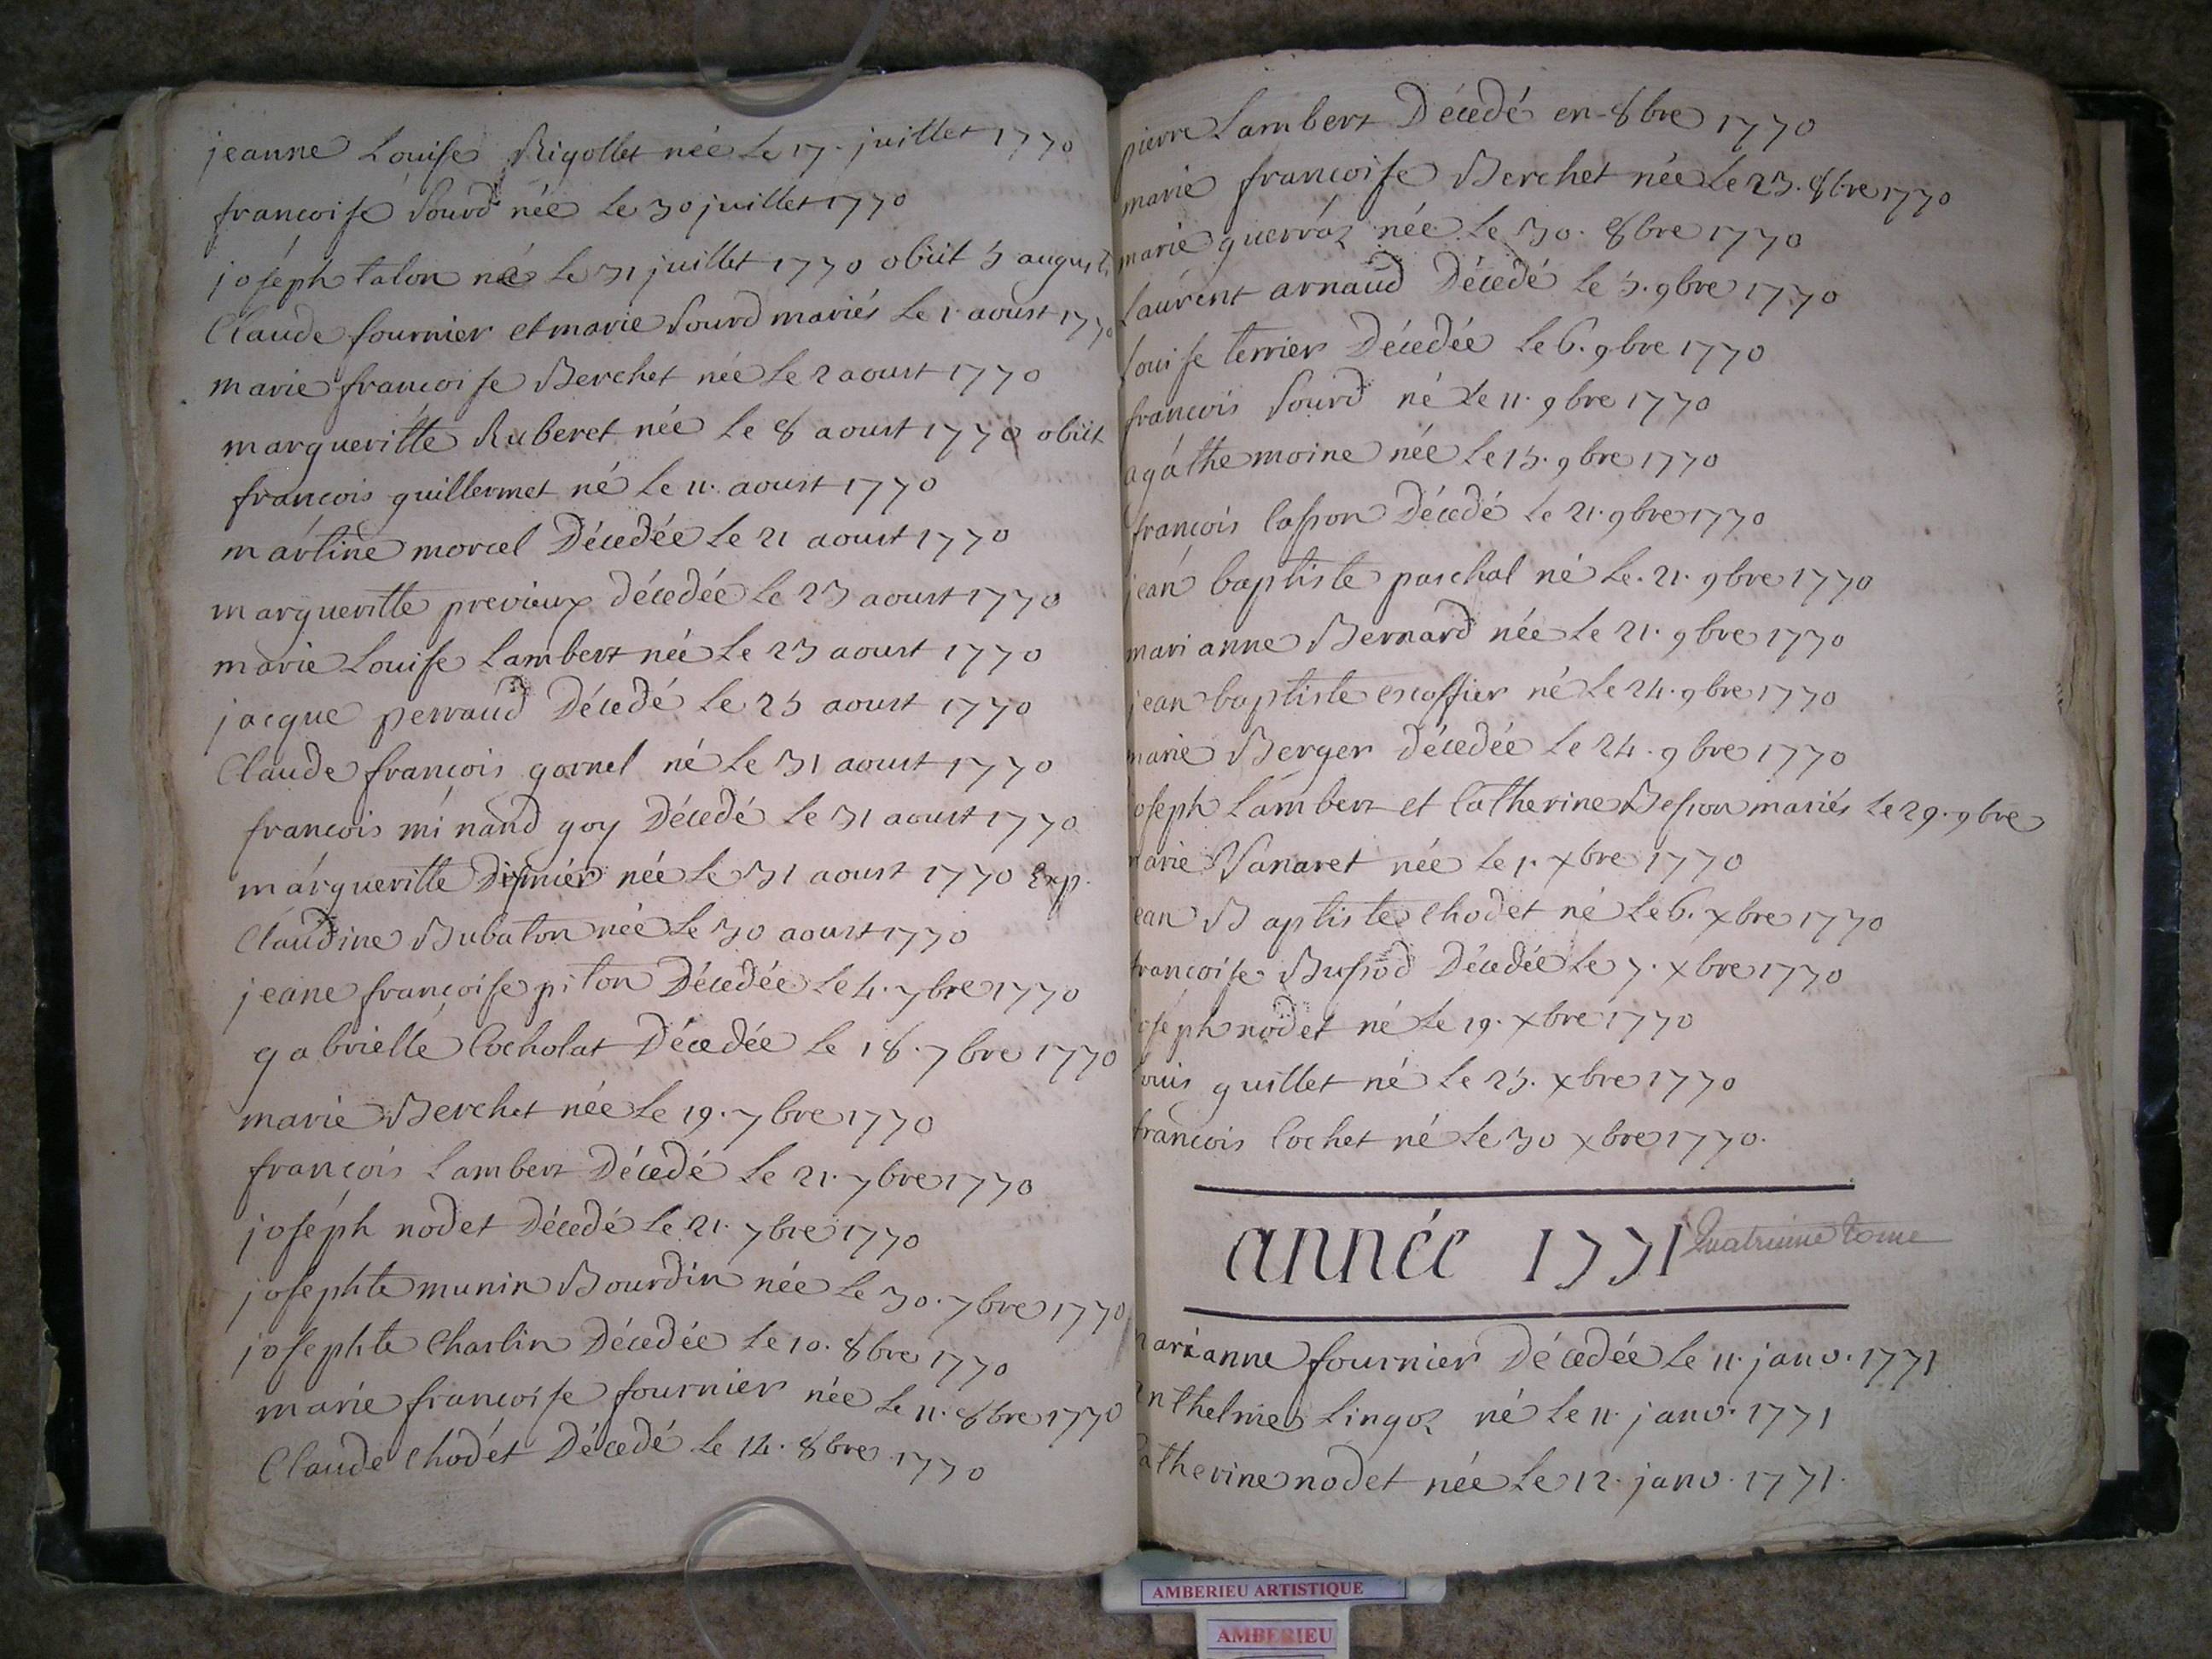 jeanne Louise Rigollet née Le 17. juillet 1770
francoise Sourd née Le 30 juillet 1770
joseph talon né Le 31 juillet 1770 obiit 5 augusti
Claude fournier et marie Sourd mariés Le 1. aoust 1770
marie francoise Berchet née Le 2 aoust 1770
margueritte Ruberet née Le 8 aoust 1770 obiit
françois guillermet né Le 11. aoust 1770
martine morcel Décedée Le 21 aoust 1770
margueritte previeux décedée Le 23 aoust 1770
marie Louise Lambert née Le 23 aoust 1770
jacque perraud Décedé Le 25 aoust 1770
Claude françois gornel né Le 31 aoust 1770
francois minand goy Décedé Le 31 aoust 1770
margueritte née Le 31 aoust 1770 Exp.
Claudine Bubaton née Le 30 aoust 1770
jeane françoise piton Décedée Le 4. 7bre 1770
gabrielle Cocholat Décedée Le 18. 7bre 1770
marie Berchet née Le 19. 7bre 1770
françois Lambert Décedé Le 21. 7bre 1770
joseph nodet Décedé Le 21. 7bre 1770
josephte munin Bourdin née Le 30. 7bre 1770
josephte Charlin Décedée Le 10. 8bre 1770
marie francoise fournier née Le 11. 8bre 1770
Claude Chodet Décedé Le 14. 8bre 1770
pierre Lambert Décedé en 8bre 1770
marie francoise Berchet née Le 23. 8bre 1770
marie guerráz née Le 30. 8bre 1770
Laurent arnaud Décedé Le 5. 9bre 1770
Louise terrier Décedée Le 6. 9bre 1770
françois Sourd né Le 11. 9bre 1770
agáthe moine née Le 15. 9bre 1770
françois Casson Décedé Le 21. 9bre 1770
jean baptiste paschal né Le. 21. 9bre 1770
marianne Bernard née Le 21. 9bre 1770
jean baptiste escoffier né Le 24. 9bre 1770
marie Berger décedée Le 24. 9bre 1770
joseph Lambert et Catherine Besson mariés Le 29. 9bre
marie Vanaret née Le 1. xbre 1770
jean Baptiste Chodet né Le 6. xbre 1770
françoise Bussod Décedée Le 7. xbre 1770
joseph nodet né Le 19. xbre 1770
Louis guillet né Le 25. xbre 1770
francois Cochet né Le 30 xbre 1770.
année 1771 Quatrieme tome
marianne fournier Décedée Le 11. janv. 1771
anthelme Lingoz né Le 11. janv. 1771
Catherine nodet née Le 12. janv. 1771.
AMBERIEU ARTISTIQUE
AMBERIEU